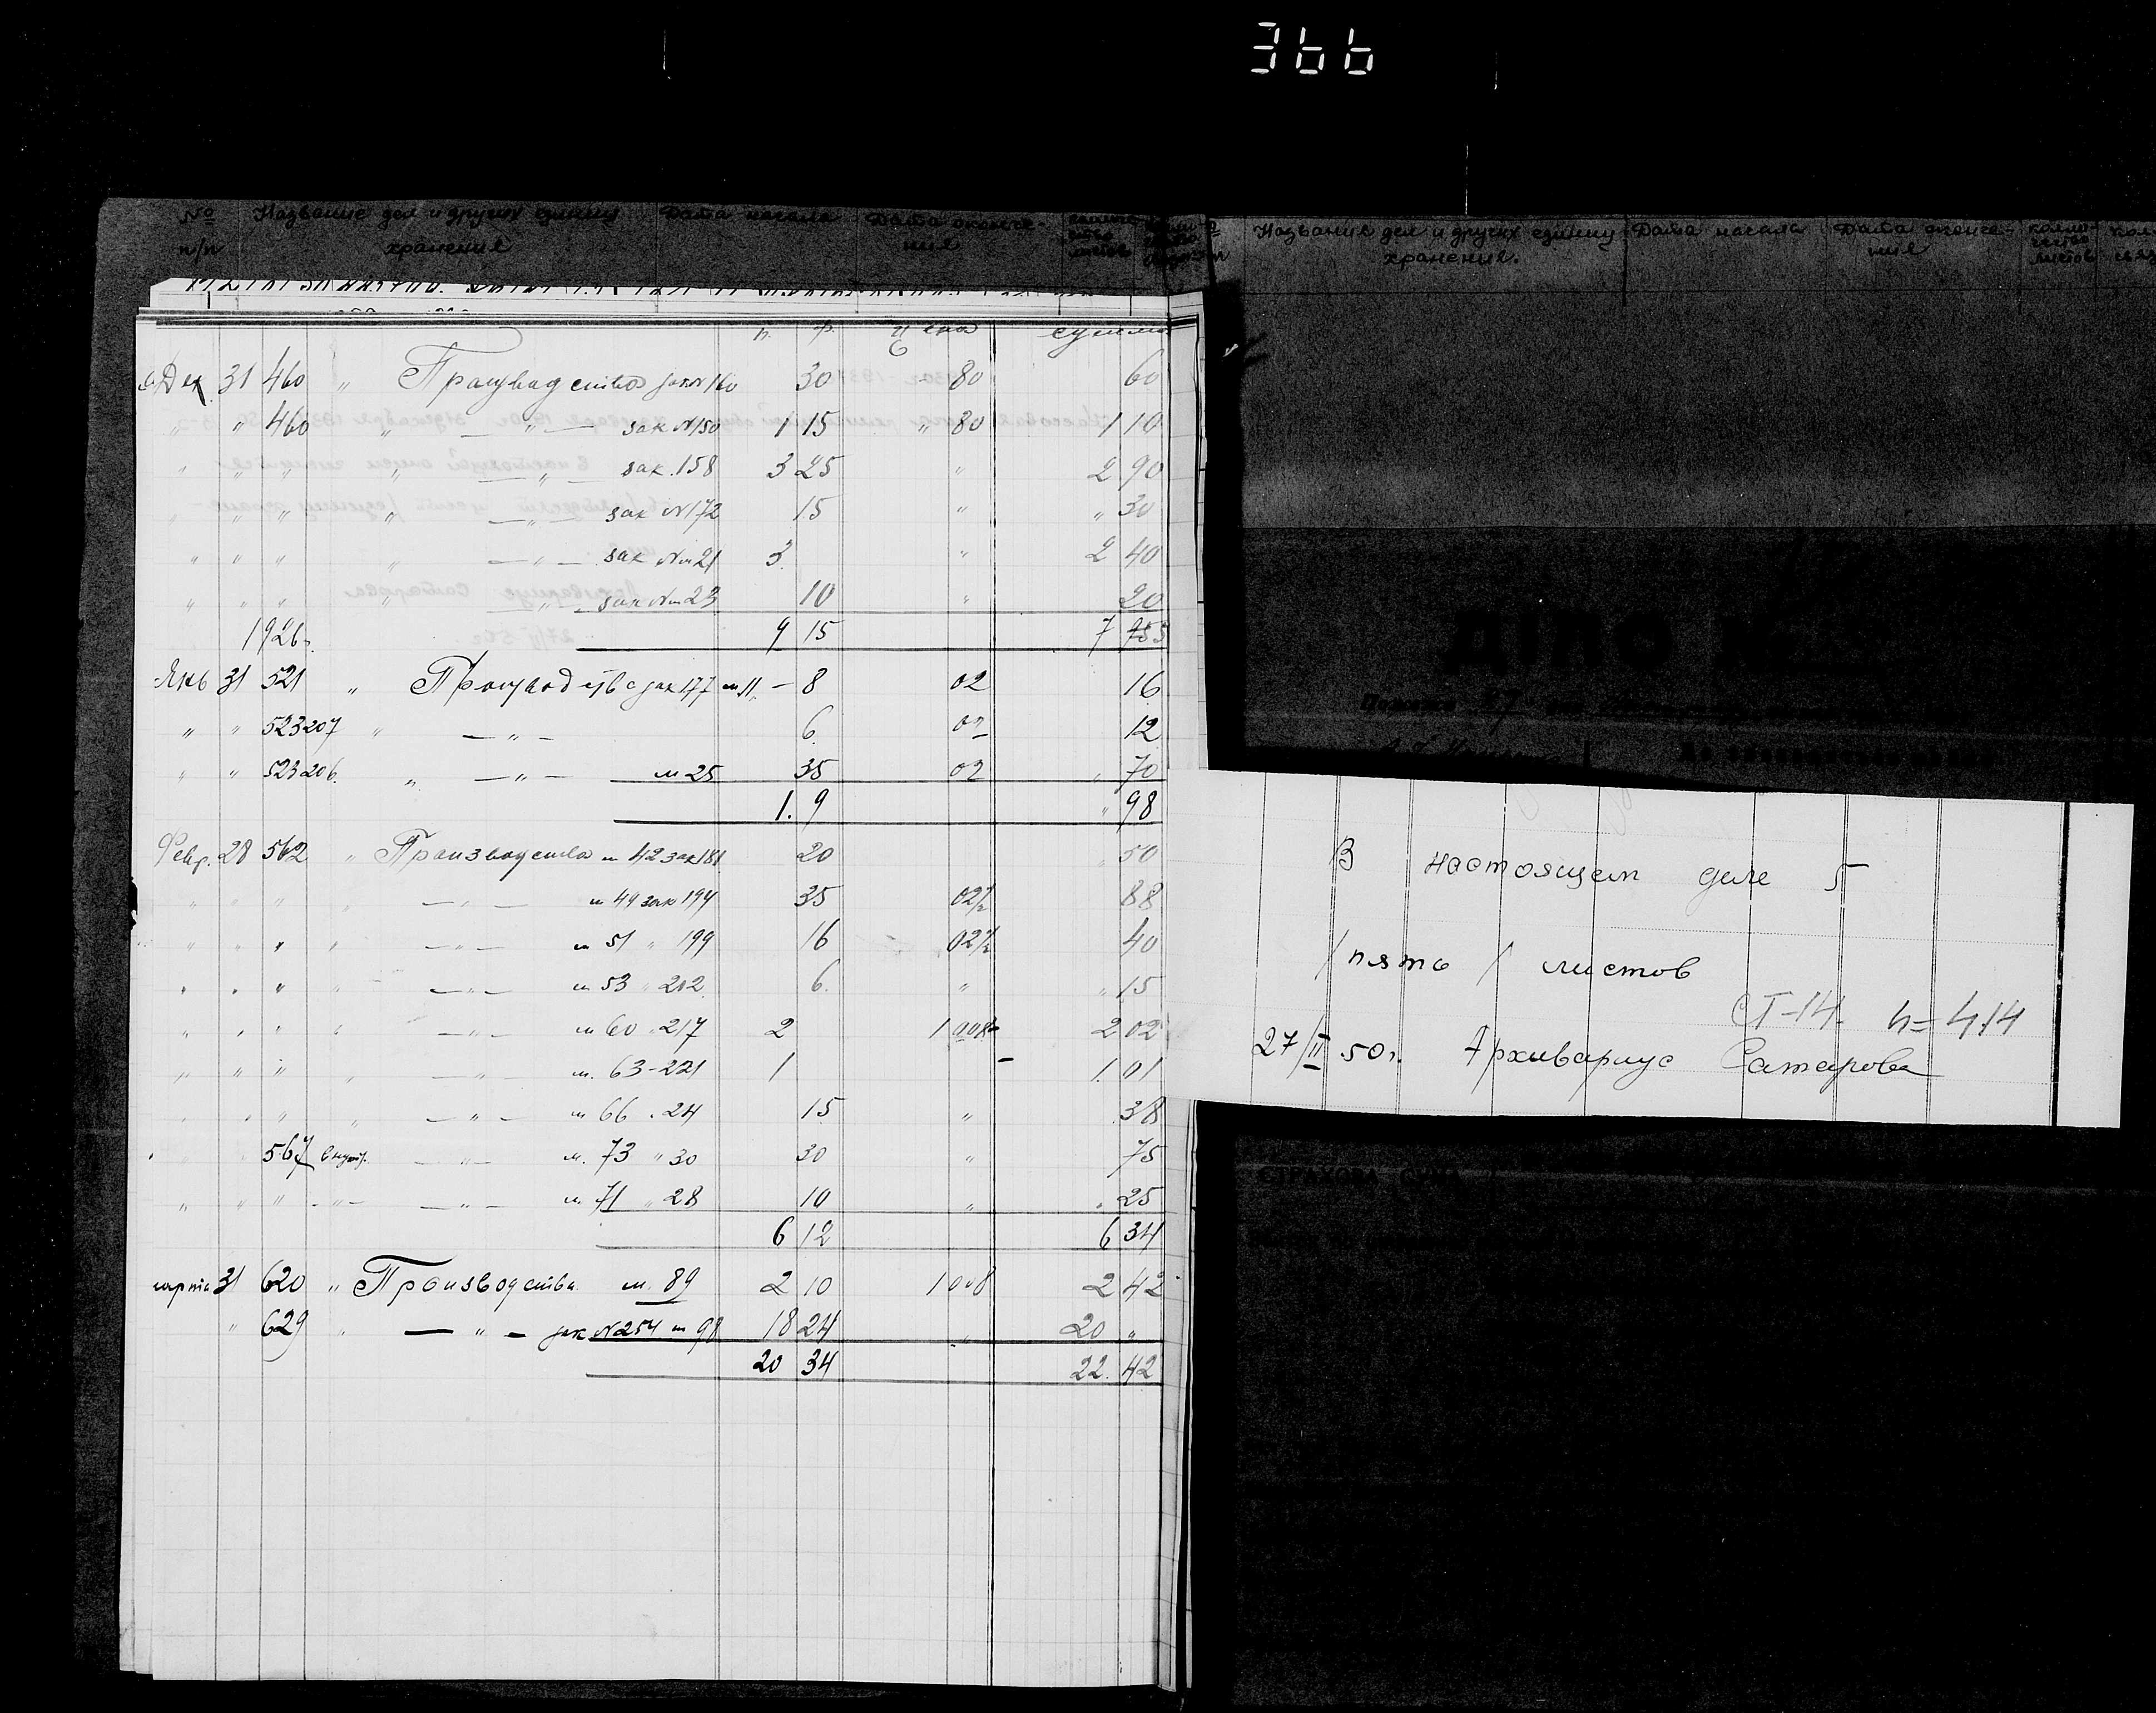 366
№ п/п Название дел и других единиц хранения Дата начала Дата оконче-ния
Название дел и других единиц хранения. Дата начала Дата оконче-ния коли-чество листов
п. ф. цена сумма
Дек 31 460 " Производство зак N 160 30 80 60
" " 460 " — " — зак N 150 1 15 " 80 1 10
" " " " — " — зак. 158 3 25 " 2 90
" " " " — " — зак N 172 15 " " 30
" " " " — " — зак № 21 3. " 2 40
" " " " — " — зак № 23 10 " 20
1926 г. 9 15 7
Янв 31 521 " Производство зак 177 м 11 — 8 02 16
" " 523 207 " — " — 6. 02 12
" " 523 206. " — " — м 25 35 02 " 70
1. 9 " 98
Февр. 28 562 " Производства м 42 зак 181 20 " 50
" " " " — " — м 49 зак 194 35 02½ 88
" " " " — " — м 51 " 199 16 02½ 40
" " " " — " — м 53 " 212 6. " " 15
" " " " — " — м 60 " 217 2 2 02
" " " " — " — м. 63 - 221 1 1. 01
" " " " — " — м 66 . 24 15 " 38
" " 567 — " — м. 73 " 30 30 " 75
" " " - " - — " — м. 71 " 28 10 " . 25
6 12 6 34
марта 31 620 " Производства м. 89 2 10 1 008 2 42
" 629 " — " — зак N 254 м 98 18 24 " 20 "
20 34 22. 42
ДІЛО №
В настоящем деле 5
/ пять / листов
СТ-14. h=414
27/II 50г. Архивариус Сатарова
СТРАХОВА СУМА